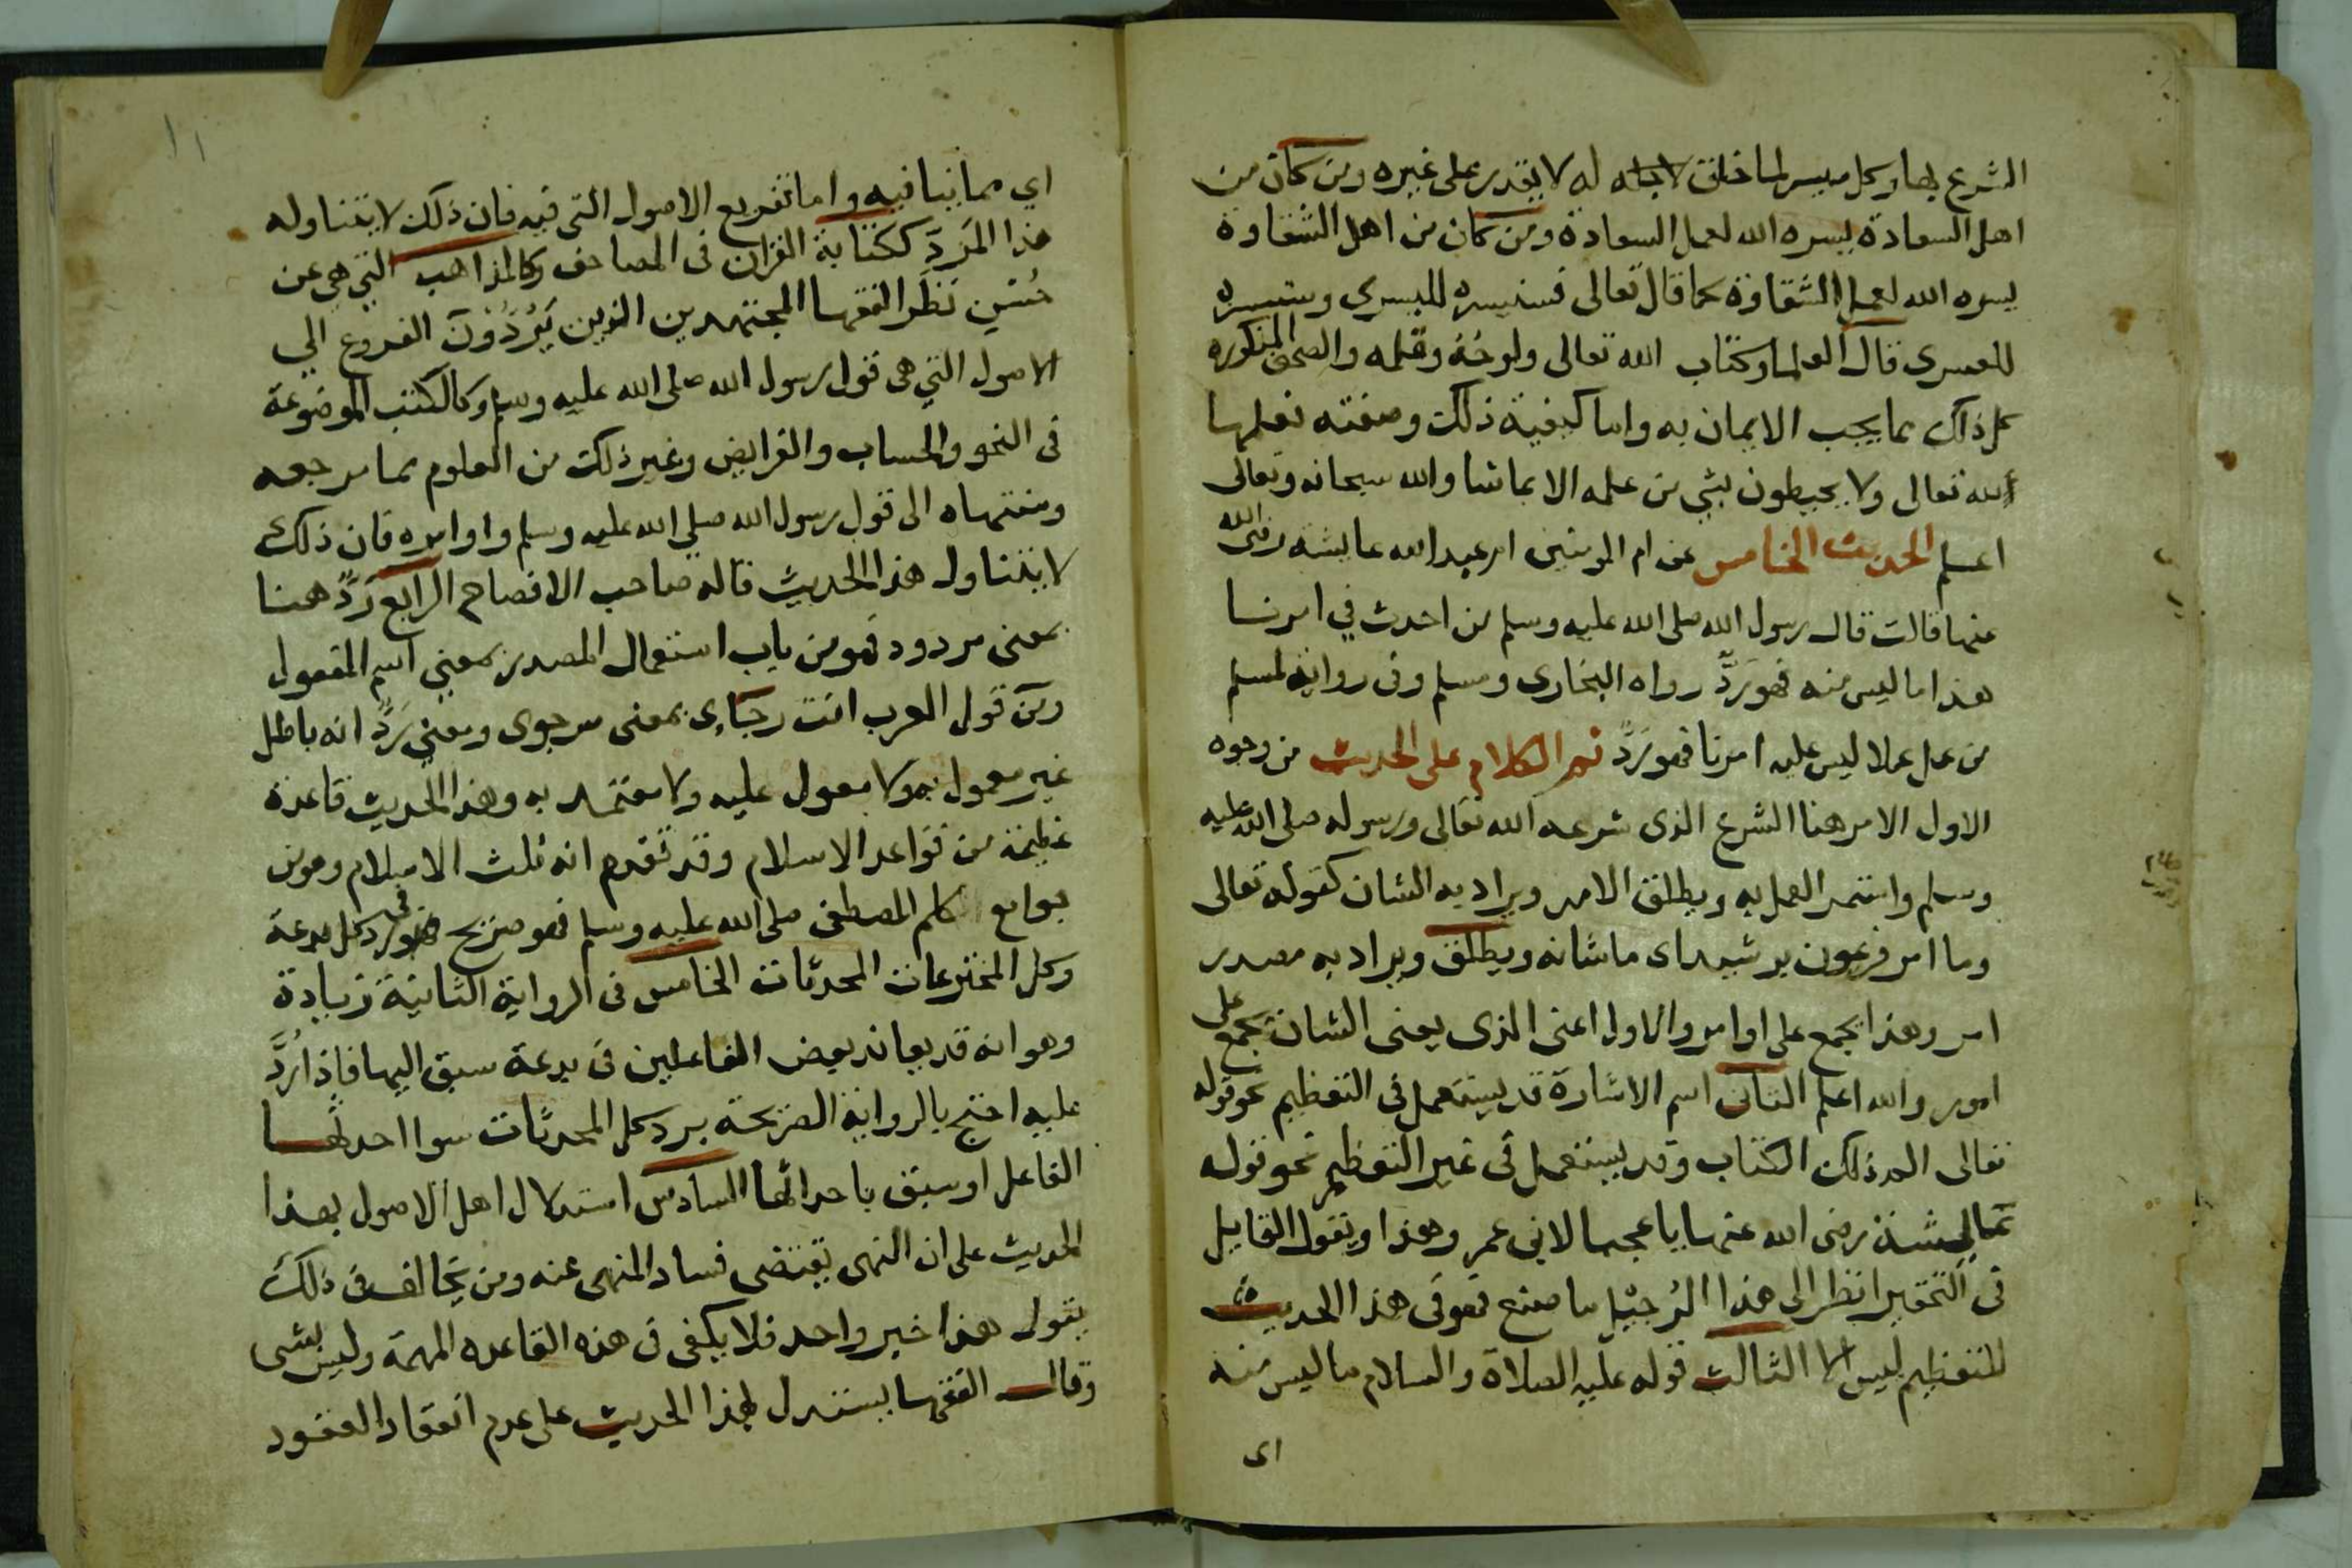 الشرع بها وكل ميسر لما خلق لاجله له لا يقدر على غيره ومن كان من
اهل السعادة يسره الله لعمل السعادة ومن كان من اهل الشقاوة
يسره الله لعمل الشقاوة كما قال تعالى فسنيسره لليسرى وسنيسره
للعسرى قال العلما وكتاب الله تعالى ولوحه وقلمه والصحف المذكورة
كل ذلك مما يجب الايمان به واما كيفية ذلك وصفته فعلمها
لله تعالى ولا يحيطون بشي من علمه الا بما شا والله سبحانه وتعالى
اعلم الحديث الخامس عن ام المومنين ام عبد الله عايشة رضى الله
عنها قالت قال رسول الله صلى الله عليه وسلم من احدث في امرنا
هذا ما ليس منه فهو رَدٌّ رواه البخارى ومسلم وفى رواية لمسلم
من عمل عملا ليس عليه امرنا فهو رَدٌّ ثم الكلام على الحديث من وجوه
الاول الامر هنا الشرع الذى شرعه الله تعالى ورسوله صلى الله عليه
وسلم واستمر العمل به ويطلق الامر ويراد به الشان كقوله تعالى
وما امر فرعون برشيد اى ما شانه ويطلق ويراد به مصدر
امر وهذا يجمع على اوامر والاول اعنى الذى يعنى الشان يجمع على
امور والله اعلم الثانى اسم الاشارة قد يستعمل فى التعظيم نحو قوله
تعالى الم ذلك الكتاب وقد يستعمل فى غير التعظيم نحو قوله
عايشة رضى الله عنها يا عجبا لابن عمر وهذا ويقول القايل
فى التحقير انظر الى هذا الرُجَيْل ما صنع فهو فى هذا الحديث
للتعظيم ليس الا الثالث قوله عليه الصلاة والسلام ما ليس منه
اى
١١
اي مما ينافيه واما تفريع الاصول التى فيه فان ذلك لا يتناوله
هذا الرَدّ ككتابة القران فى المصاحف وكالمذاهب التي هي عن
حُسْنِ نَظَر الفقها المجتهدين الذين يَرُدُّوْنَ الفروع الي
الاصول التي هى قول رسول الله صلى الله عليه وسلم وكالكتب الموضوعة
فى النحو والحساب والفرايض وغير ذلك من العلوم مما مرجعه
ومنتهاه الى قول رسول الله صلي الله عليه وسلم واوامره فان ذلك
لا يتناوله هذا الحديث قاله صاحب الافصاح الرابع رَدٌّ هنا
بمعنى مردود فهو من باب استعمال المصدر بمعني اسم المفعول
ومن قول العرب انت رجاءى بمعنى مرجوى ومعني رَدٌّ انه باطل
غير معمول به ولا معول عليه ولا معتمد به وهذا الحديث قاعدة
عظيمة من قواعد الاسلام وقد تقدم انه ثلث الاسلام وهو من
جوامع كلم المصطفى صلى الله عليه وسلم فهو صريح فى رد كل بدعة
وكل المخترعات المحدثات الخامس فى الرواية الثانية زيادة
وهو انه قد يعاند بعض الفاعلين فى بدعة سبق اليها فاذا رُدَّ
عليه احتج بالرواية الصريحة برد كل المحدثات سوا احدثها
الفاعل او سبق باحداثها السادس استدلال اهل الاصول بهذا
الحديث على ان النهى يقتضى فساد المنهى عنه ومن يخالف فى ذلك
يقول هذا خبر واحد فلا يكفى فى هذه القاعده المهمة وليس بشى
وقال الفقها يستدل بهذا الحديث على عدم انعقاد العقود